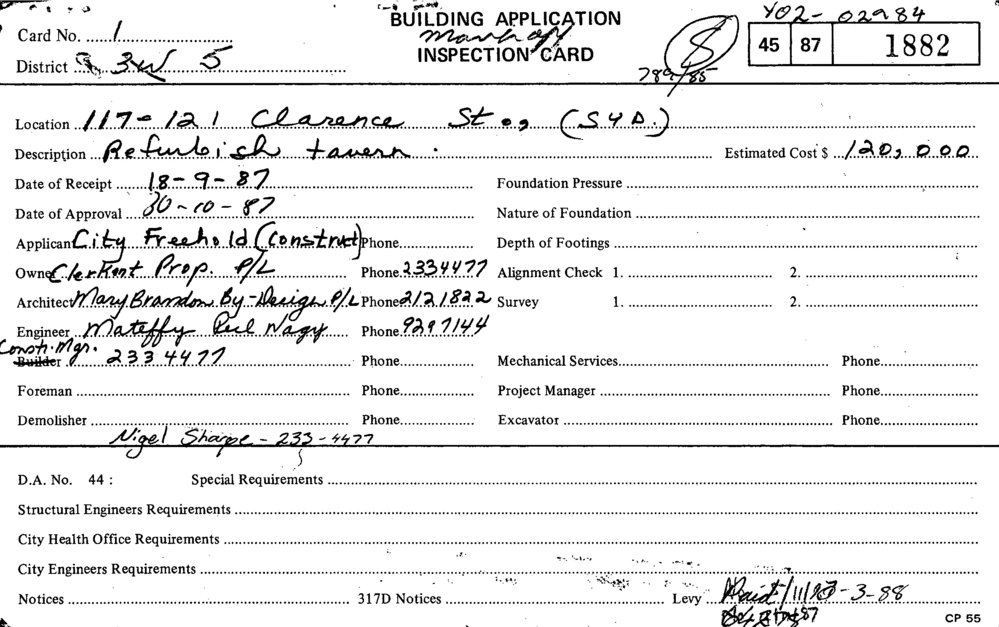 Y02-02984
BUILDING APPLICATION
INSPECTION CARD
Card No. 1
District 3W 5
789/85
S
45 87 1882
Location 117-121 Clarence St., (SYD.)
Description Refurbish tavern. Estimated Cost $ 120,000
Date of Receipt 18-9-87 Foundation Pressure
Date of Approval 30-10-87 Nature of Foundation
Applicant City Freehold (Construct) Phone Depth of Footings
Owner Clerkent Prop. P/L Phone 2334477 Alignment Check 1. 2.
Architect Mary Brandon By-Design P/L Phone 2121822 Survey 1. 2.
Engineer Mateffy Perl Nagy Phone 9297144
Constr. Mgr.
Builder 233 4477 Phone Mechanical Services Phone
Foreman Phone Project Manager Phone
Demolisher Phone Excavator Phone
Nigel Sharpe - 233-4477
D.A. No. 44 : Special Requirements
Structural Engineers Requirements
City Health Office Requirements
City Engineers Requirements
Notices 317D Notices Levy Paid 3-88